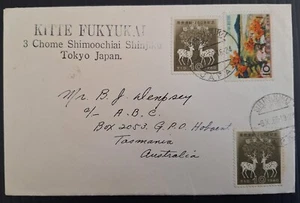 KITTE FUKYUKAI
3 Chome Shimoochiai Shinjuku
Tokyo Japan.
Mr. B. J. Dempsey
C/- A.B.C.
Box 2053, G.P.O. Hobart
Tasmania
Australia